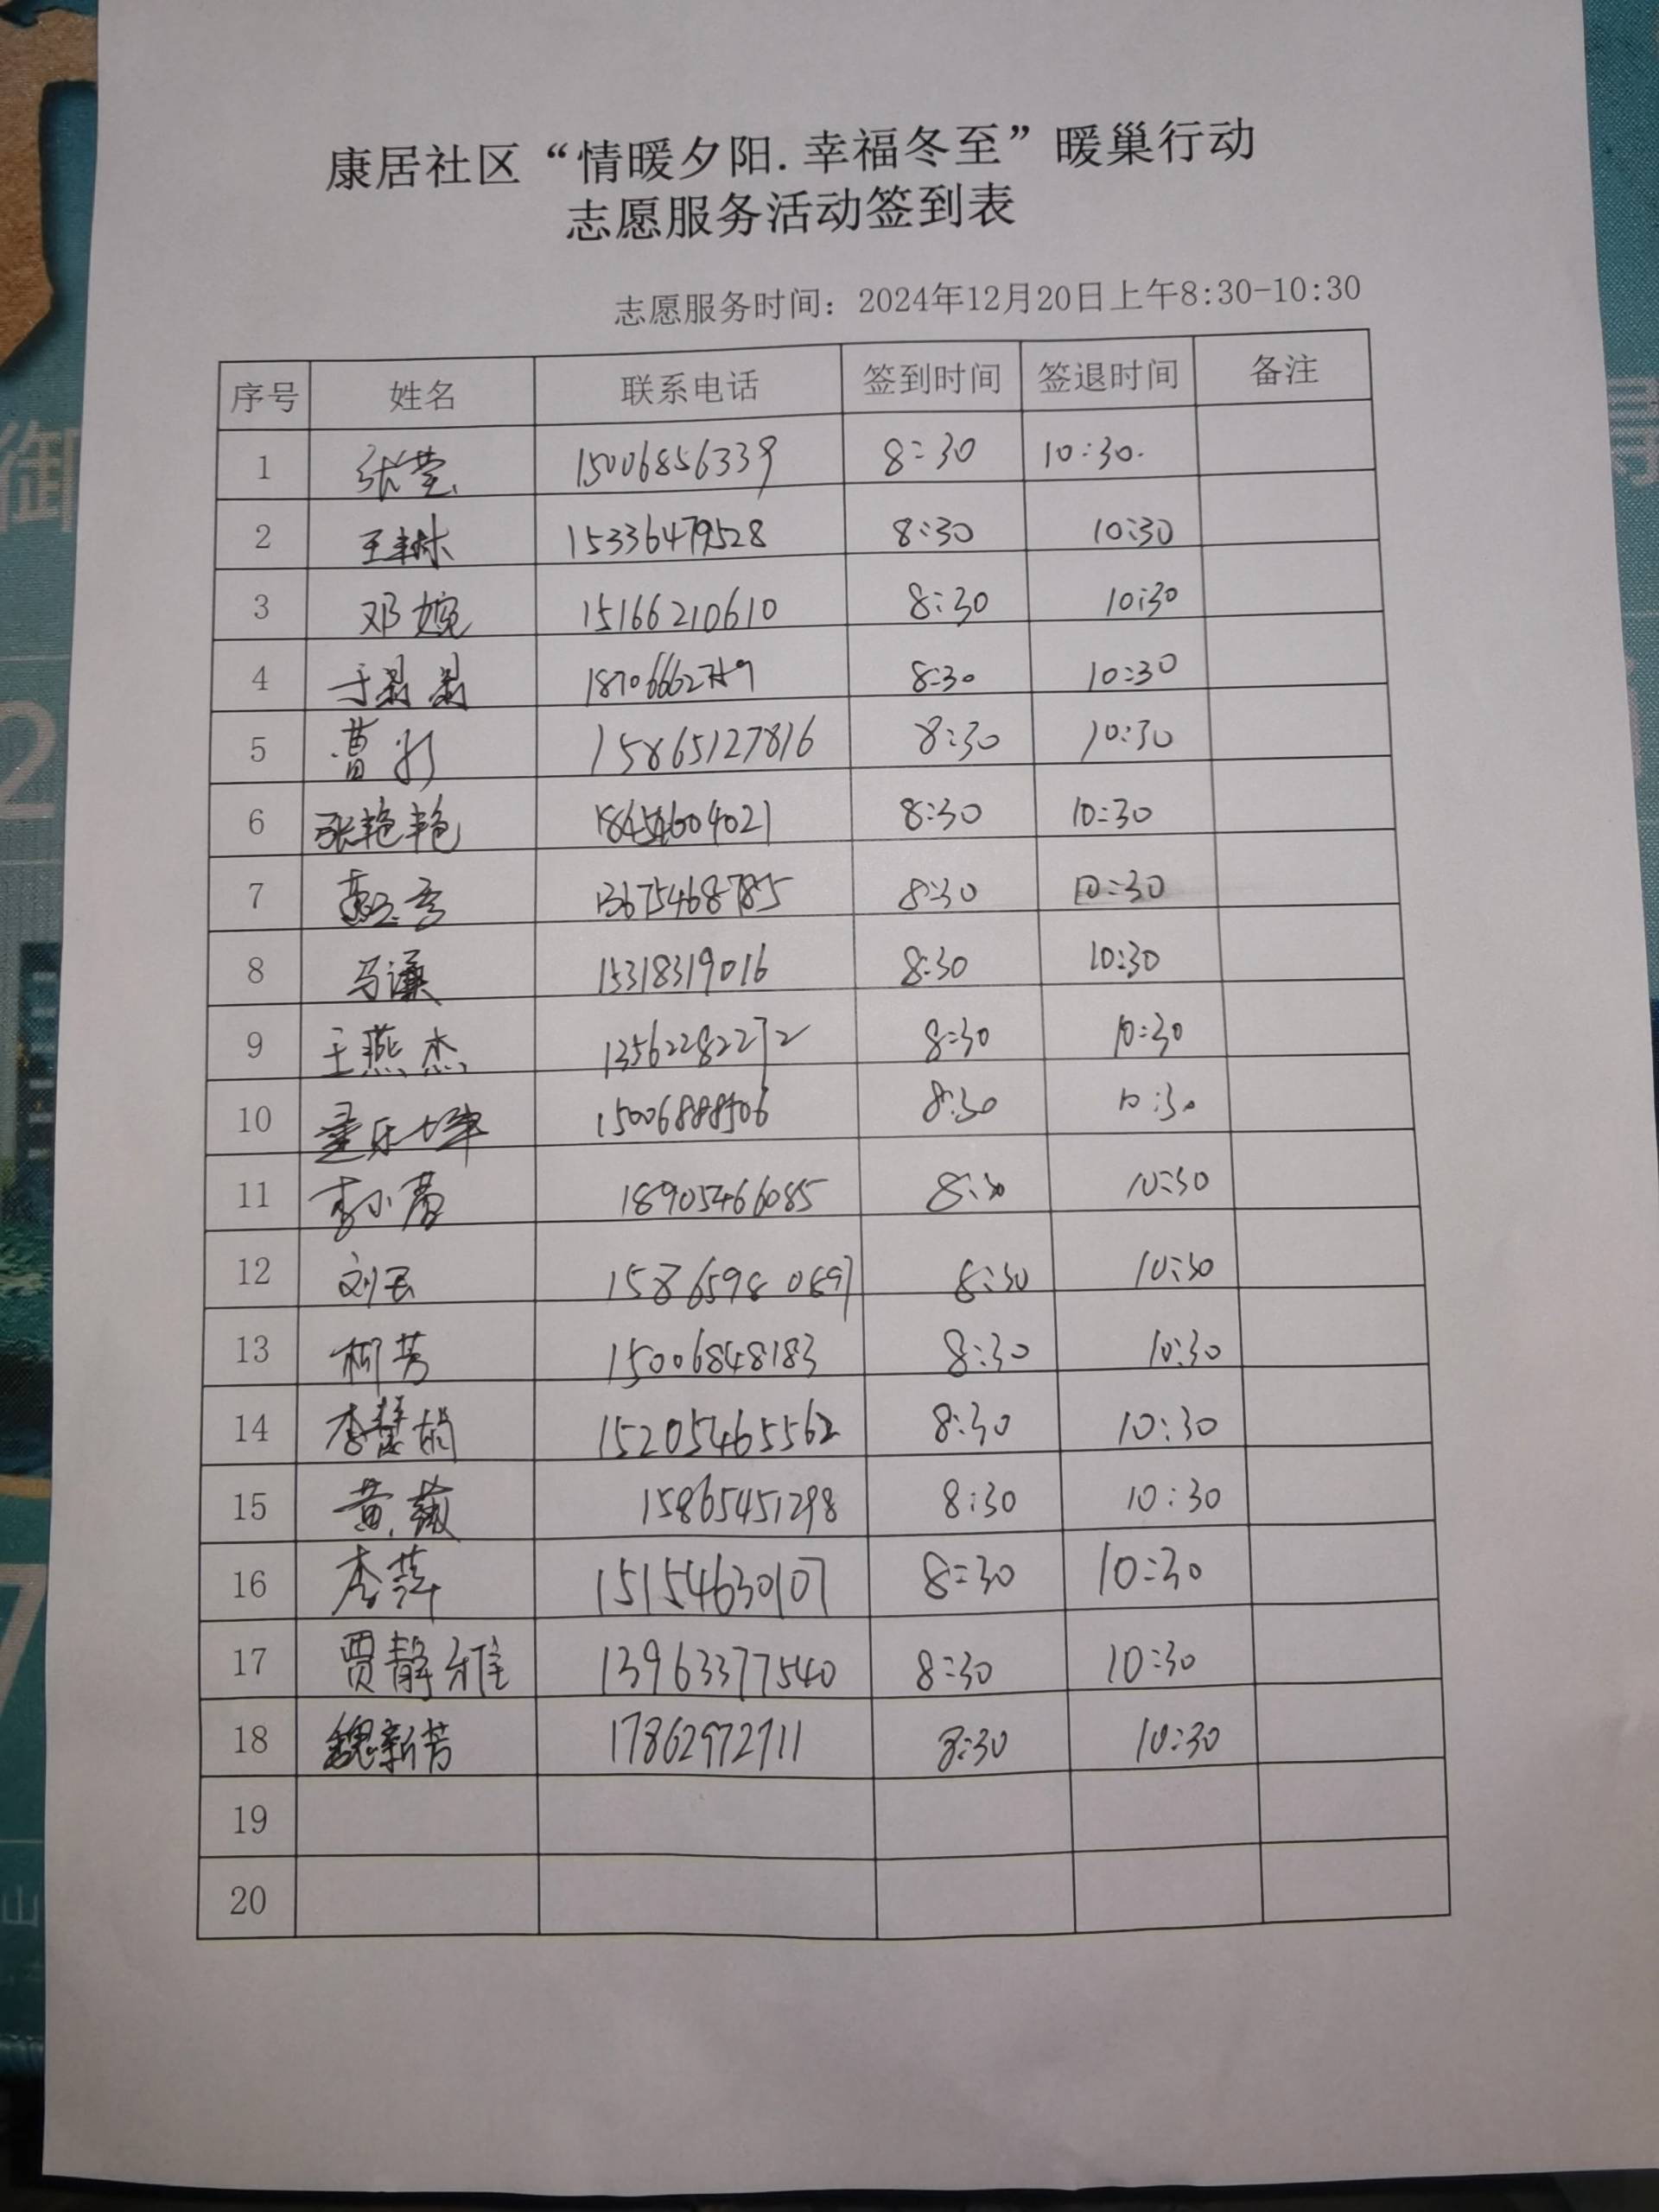 康居社区“情暖夕阳.幸福冬至”暖巢行动
志愿服务活动签到表
志愿服务时间：2024年12月20日上午8:30-10:30
序号 姓名 联系电话 签到时间 签退时间 备注
1 张莹 15006856339 8:30 10:30.
2 王 15336479528 8:30 10:30
3 邓婉 15166210610 8:30 10:30
4 于 8:30 10:30
5 曹 15865127816 8:30 10:30
6 张艳艳 18454604021 8:30 10:30
7 13675468785 8:30 10:30
8 马谦 15318319016 8:30 10:30
9 王燕杰 13562282272 8:30 10:30
10 15006888506 8:30 10:30
11 李小 18905466085 8:30 10:30
12 刘 8:30 10:30
13 柳芳 15006848183 8:30 10:30
14 李慧娟 15205465562 8:30 10:30
15 黄薇 15865451298 8:30 10:30
16 李萍 15154630107 8:30 10:30
17 贾静雅 13963377540 8:30 10:30
18 魏新芳 17862972711 8:30 10:30
19
20
御
2
7
山